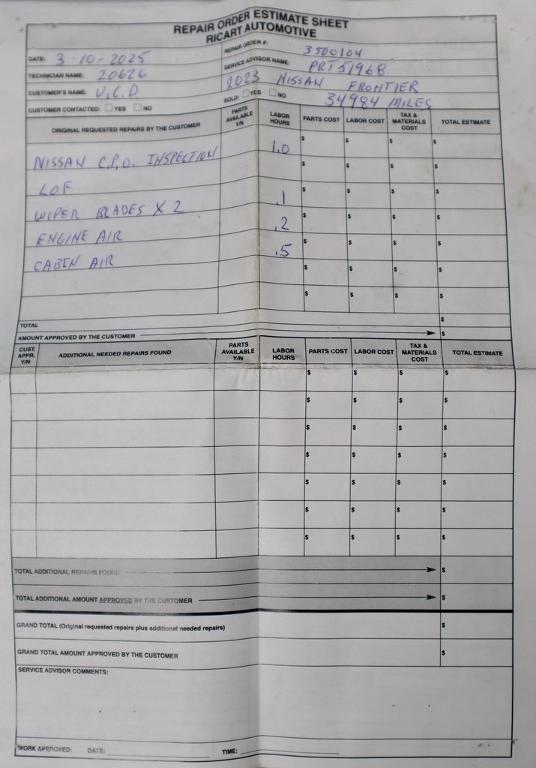 REPAIR ORDER ESTIMATE SHEET
RICART AUTOMOTIVE
DATE: 3-10-2025
REPAIR ORDER #: 3500104
TECHNICIAN NAME: 20626
SERVICE ADVISOR NAME: PRT51968
CUSTOMER'S NAME: U.C.D
2023 NISSAN FRONTIER
CUSTOMER CONTACTED: YES NO
SOLD: YES NO
34984 MILES
ORIGINAL REQUESTED REPAIRS BY THE CUSTOMER PARTS AVAILABLE Y/N LABOR HOURS PARTS COST LABOR COST TAX & MATERIALS COST TOTAL ESTIMATE
NISSAN C.P.O. INSPECTION 1.0 $ $ $ $
LOF $ $ $ $
WIPER BLADES X 2 .1 $ $ $ $
ENGINE AIR .2 $ $ $ $
CABIN AIR .5 $ $ $ $
$ $ $ $
$ $ $ $
TOTAL $
AMOUNT APPROVED BY THE CUSTOMER $
CUST. APPR. Y/N ADDITIONAL NEEDED REPAIRS FOUND PARTS AVAILABLE Y/N LABOR HOURS PARTS COST LABOR COST TAX & MATERIALS COST TOTAL ESTIMATE
$ $ $ $
$ $ $ $
$ $ $ $
$ $ $ $
$ $ $ $
$ $ $ $
$ $ $ $
TOTAL ADDITIONAL REPAIRS FOUND $
TOTAL ADDITIONAL AMOUNT APPROVED BY THE CUSTOMER $
GRAND TOTAL (Original requested repairs plus additional needed repairs) $
GRAND TOTAL AMOUNT APPROVED BY THE CUSTOMER $
SERVICE ADVISOR COMMENTS:
WORK APPROVED: DATE: TIME: